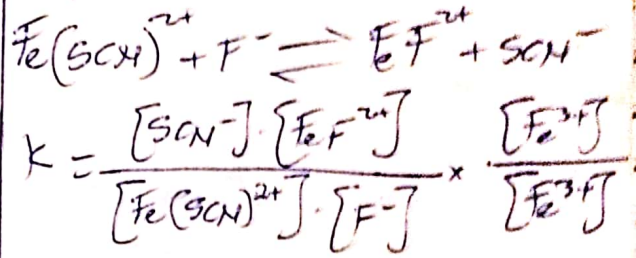 Fe(SCN)²⁺ + F⁻ ⇌ FeF²⁺ + SCN⁻
K = [SCN⁻]·[FeF²⁺] / [Fe(SCN)²⁺]·[F⁻] × [Fe³⁺] / [Fe³⁺]